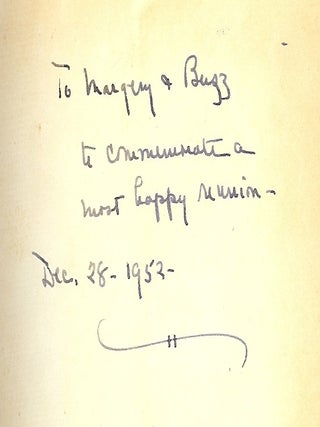 To Margery & Buzz
to commemorate a
most happy reunion -
Dec. 28 - 1952 -